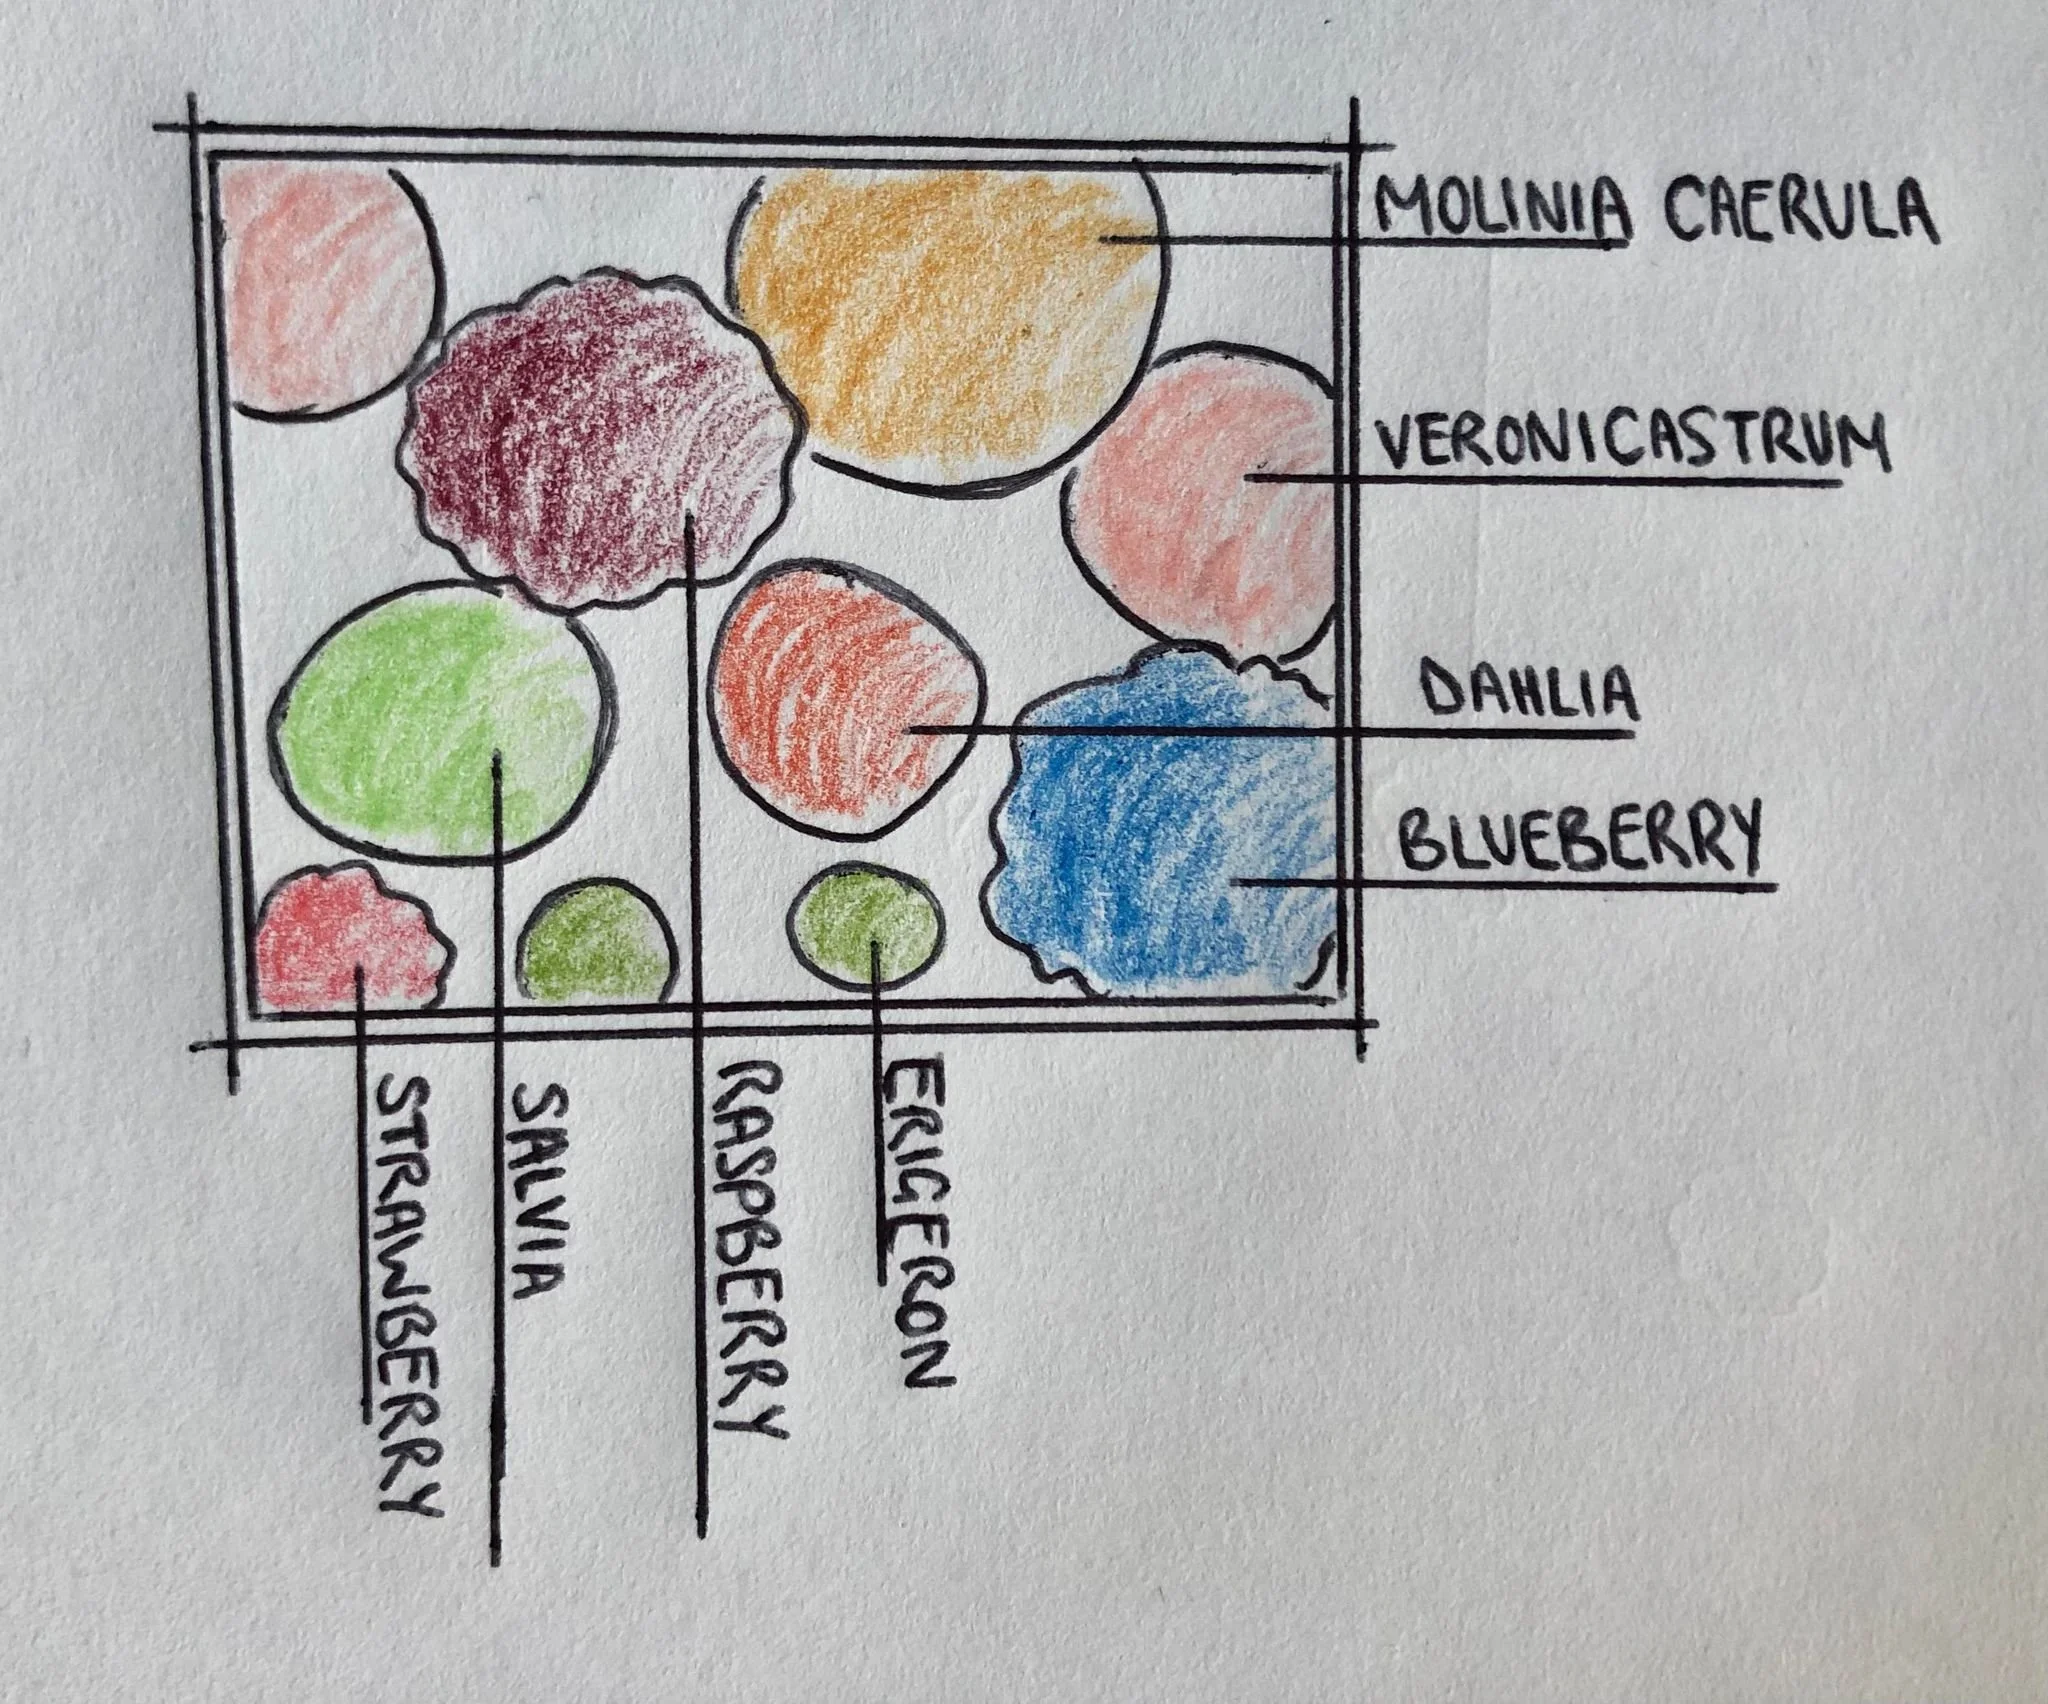 MOLINIA CAERULA
VERONICASTRUM
DAHLIA
BLUEBERRY
STRAWBERRY
SALVIA
RASPBERRY
ERIGERON